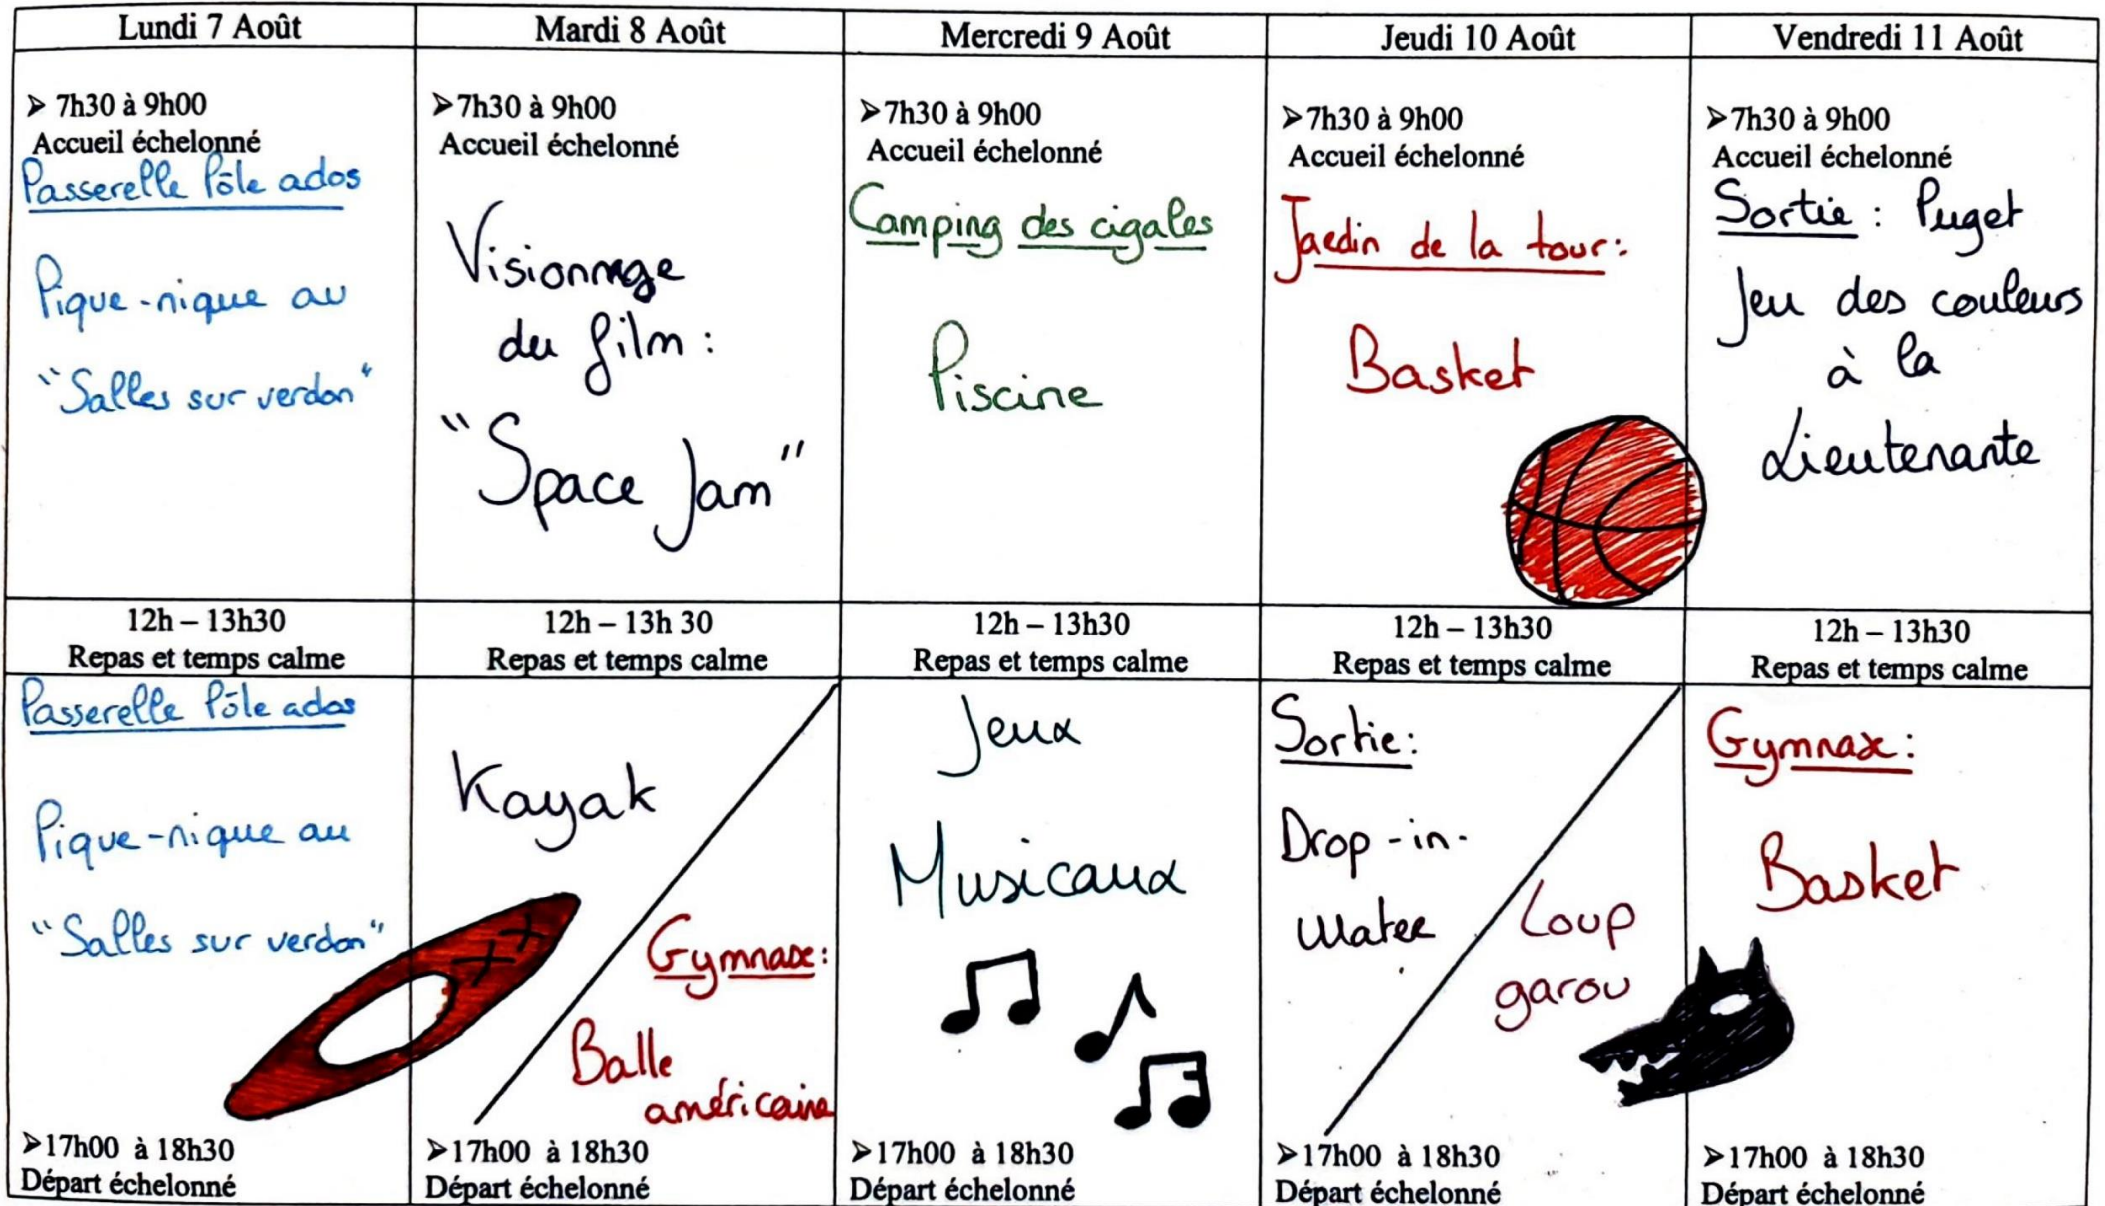 Lundi 7 Août
Mardi 8 Août
Mercredi 9 Août
Jeudi 10 Août
Vendredi 11 Août
➢ 7h30 à 9h00
Accueil échelonné
Passerelle Pôle ados
Pique-nique au
"Salles sur verdon"
➢7h30 à 9h00
Accueil échelonné
Visionnage
du film :
"Space Jam"
➢7h30 à 9h00
Accueil échelonné
Camping des cigales
Piscine
➢7h30 à 9h00
Accueil échelonné
Jardin de la tour :
Basket
➢7h30 à 9h00
Accueil échelonné
Sortie : Puget
Jeu des couleurs
à la
Lieutenante
12h – 13h30
Repas et temps calme
12h – 13h 30
Repas et temps calme
12h – 13h30
Repas et temps calme
12h – 13h30
Repas et temps calme
12h – 13h30
Repas et temps calme
Passerelle Pôle ados
Pique-nique au
"Salles sur verdon"
➢17h00 à 18h30
Départ échelonné
Kayak
Gymnase :
Balle
américaine
➢17h00 à 18h30
Départ échelonné
Jeux
Musicaux
➢17h00 à 18h30
Départ échelonné
Sortie :
Drop-in-
water
Loup
garou
➢17h00 à 18h30
Départ échelonné
Gymnase :
Basket
➢17h00 à 18h30
Départ échelonné